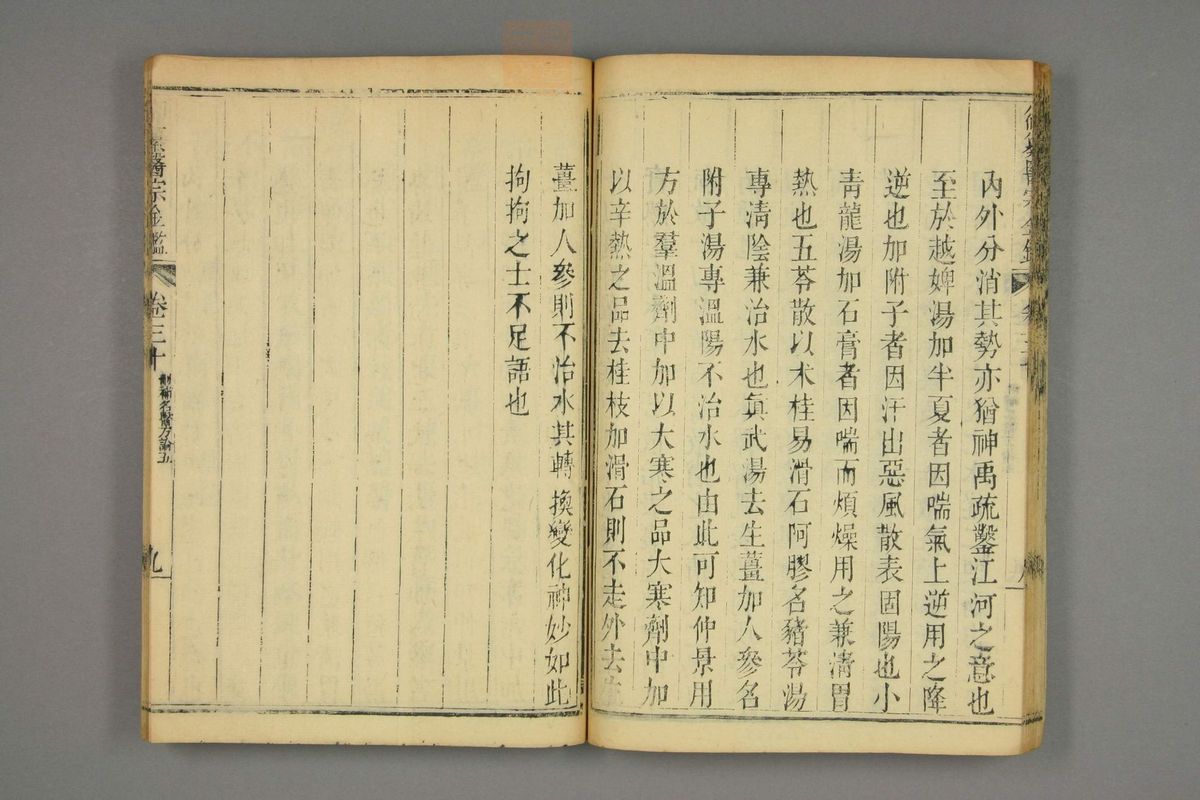 內外分消其勢亦猶神禹疏鑿江河之意也
至於越婢湯加半夏者因喘氣上逆用之降
逆也加附子者因汗出惡風散表固陽也小
青龍湯加石膏者因喘而煩燥用之兼清胃
熱也五苓散以术桂易滑石阿膠名豬苓湯
專清陰兼治水也眞武湯去生薑加人參名
附子湯專溫陽不治水也由此可知仲景用
方於羣溫劑中加以大寒之品大寒劑中加
以辛熱之品去桂枝加滑石則不走外去生
薑加人參則不治水其轉換變化神妙如此
拘拘之士不足語也
醫宗金鑑 卷三十 刪補名醫方論五 九